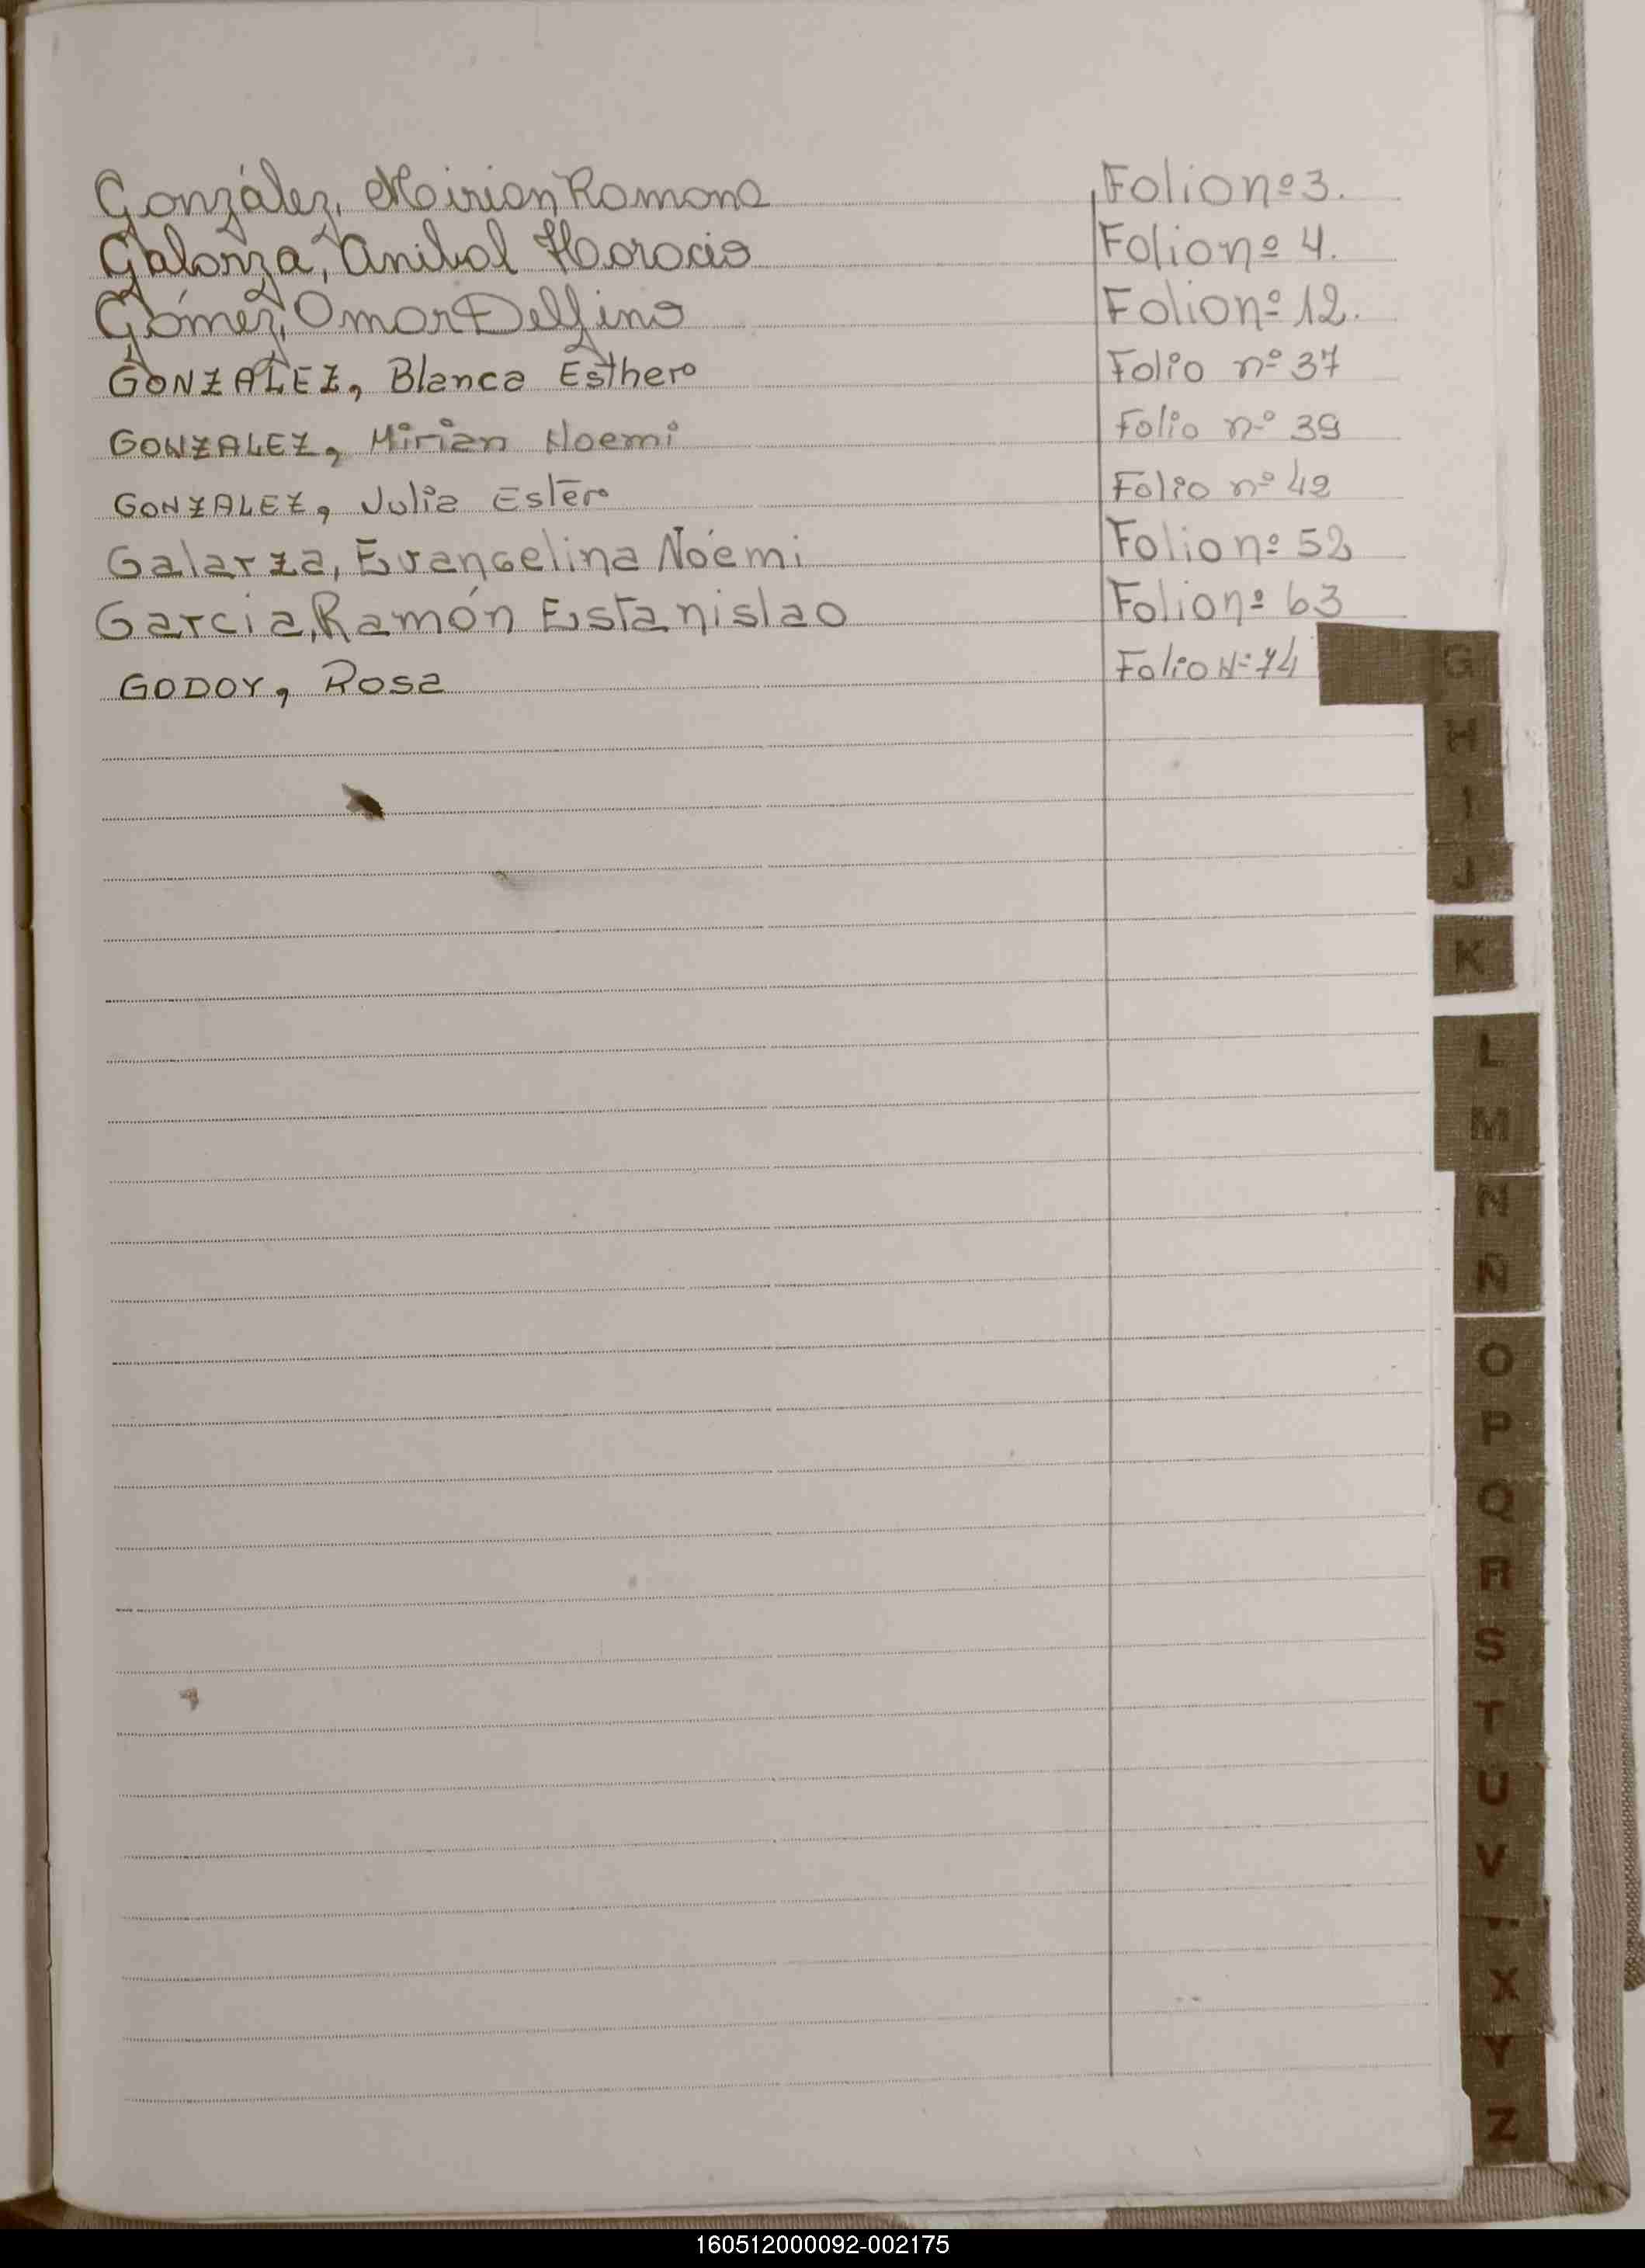 González, Mirian Ramona Folio nº 3.
Galarza, Anibal Horacio Folio nº 4.
Gómez, Omar Delfino Folio nº 12.
GONZALEZ, Blanca Esther Folio nº 37
GONZALEZ, Mirian Noemi Folio nº 39
GONZALEZ, Julia Ester Folio nº 42
Galarza, Evangelina Noemi Folio nº 52
Garcia, Ramón Estanislao Folio nº 63
GODOY, Rosa Folio Nº 74
G
H
I
J
K
L
M
N
Ñ
O
P
Q
R
S
T
U
V
X
Y
Z
160512000092-002175